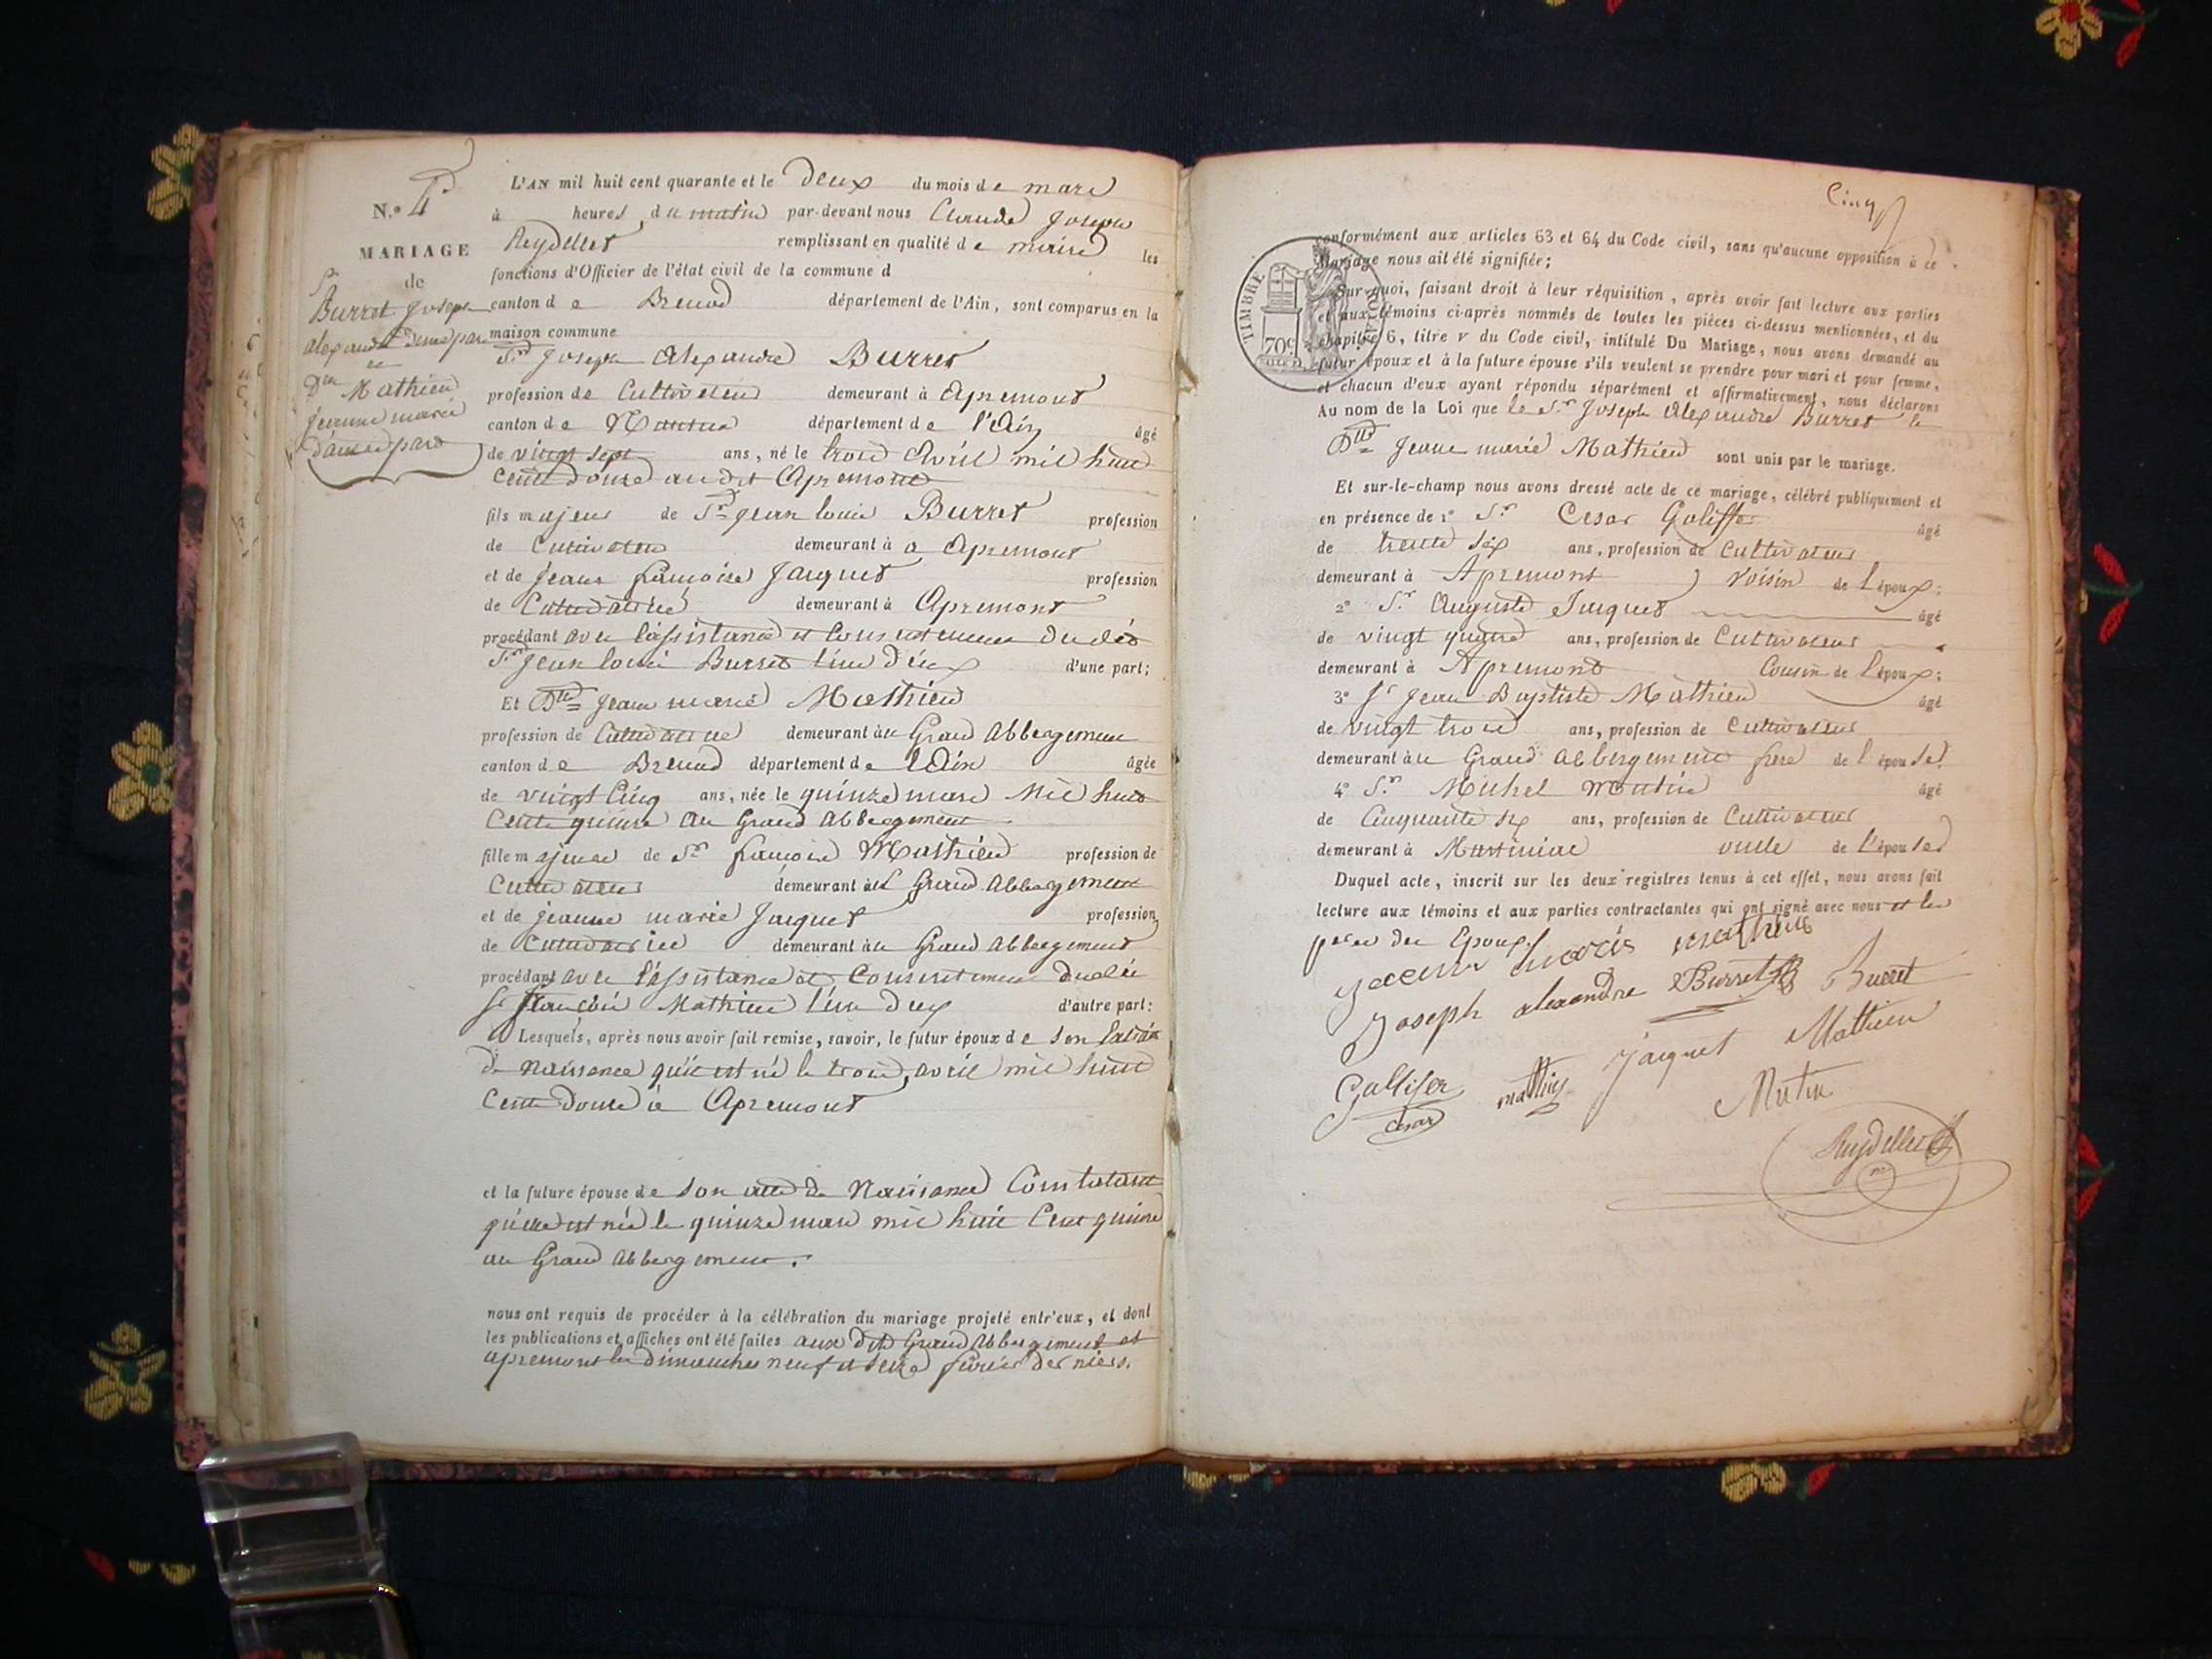 N.° 4
MARIAGE
de
Sr
Burret Joseph
alexandre d'une part
et
Dlle Mathieu
Jeanne marie
d'autre part
L'AN mil huit cent quarante et le deux du mois de mars
à heures du matin par-devant nous Claude Joseph
Reydellet remplissant en qualité de maire les
fonctions d'Officier de l'état civil de la commune d
canton de Brenod département de l'Ain, sont comparus en la
maison commune
Sr Joseph Alexandre Burret
profession de Cultivateur demeurant à Apremont
canton de Nantua département de l'Ain âgé
de vingt sept ans, né le trois Avril mil huit
cent douze au dit Apremont
fils majeur de Sr jean louis Burret profession
de Cultivateur demeurant à a Apremont
et de Jeanne françoise Jacquet profession
de Cultivatrice demeurant à Apremont
procédant avec l'assistance et consentement dudit
Sr Jean louis Burret l'un d'eux d'une part;
Et Dlle Jeane marie Mathieu
profession de Cultivatrice demeurant au Grand Abbergement
canton de Brenod département de l'Ain âgée
de vingt Cinq ans, née le quinze mars Mil huit
Cent quinze au Grand Abbergement
fille majeure de Sr françois Mathieu profession de
Cultivateur demeurant au Grand Abbergement
et de jeanne marie Jacquet profession
de Cultivatrice demeurant au Grand Abbergement
procédant avec l'assistance et Consentement dudit
Sr françois Mathieu l'un deux d'autre part:
Lesquels, après nous avoir fait remise, savoir, le futur époux de son
de Naissance qu'il est né le trois, avril mil huit
Cent Douze à Apremont
et la future épouse de son acte de Naissance Constatant
qu'elle est née le quinze mars mil huit Cent quinze
au Grand Abbergement.
nous ont requis de procéder à la célébration du mariage projeté entr'eux, et dont
les publications et affiches ont été faites aux dits Grand Abbergement et
apremont les dimanches neuf et seize février derniers.
Cinq
conformément aux articles 63 et 64 du Code civil, sans qu'aucune opposition à ce
Mariage nous ait été signifiée;
TIMBRE ROYAL
70c
Sur quoi, faisant droit à leur réquisition, après avoir fait lecture aux parties
et aux témoins ci-après nommés de toutes les pièces ci-dessus mentionnées, et du
chapitre 6, titre v du Code civil, intitulé Du Mariage, nous avons demandé au
futur époux et à la future épouse s'ils veulent se prendre pour mari et pour femme,
et chacun d'eux ayant répondu séparément et affirmativement, nous déclarons
Au nom de la Loi que le Sr Joseph Alexandre Burret
Dlle Jeane marie Mathieu sont unis par le mariage.
Et sur-le-champ nous avons dressé acte de ce mariage, célébré publiquement et
en présence de 1° Sr Cesar Goliffer âgé
de trente six ans, profession de Cultivateur
demeurant à Apremont voisin de l'époux;
2° Sr Auguste Jacquet âgé
de vingt quatre ans, profession de Cultivateur
demeurant à Apremont Cousin de l'époux;
3° Sr Jean Baptiste Mathieu âgé
de vingt trois ans, profession de Cultivateur
demeurant au Grand Abbergement frère de l'épouse;
4° Sr Michel âgé
de Cinquante six ans, profession de Cultivateur
demeurant à oncle de l'épouse
Duquel acte, inscrit sur les deux registres tenus à cet effet, nous avons fait
lecture aux témoins et aux parties contractantes qui ont signé avec nous et les
pères des Epoux.
jeane marie mathieu
Joseph alexandre Burret Burret
Gallifer mathieu jacquet Mathieu
cesar Mutin
Reydellet